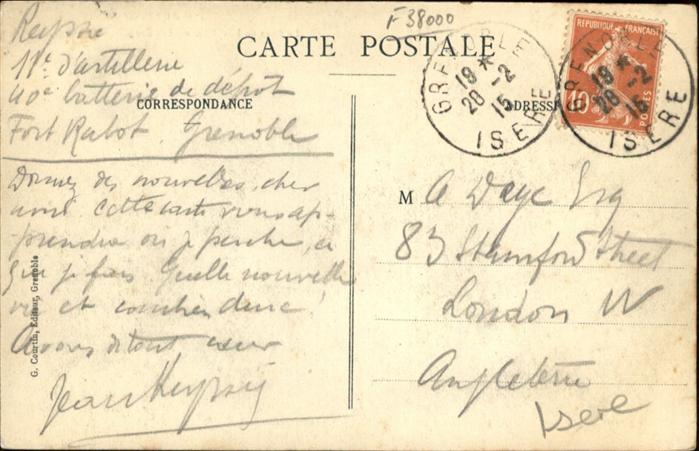 F 38000
CARTE POSTALE
CORRESPONDANCE
ADRESSE
RÉPUBLIQUE FRANÇAISE
10
POSTES
GRENOBLE
19 *
28 -2
15
ISERE
GRENOBLE
19 *
28 -2
15
ISERE
11e d'artillerie
40e batterie de dépôt
Fort Rabot Grenoble
Donnez des nouvelles, cher
ami cette carte vous ap-
prendra où je perche, ce
que je fais Quelle nouvelle
vie et combien dure
A vous de tout cœur
Jean
M A Daye Esq
83 Stamford Street
London W
Angleterre
Isere
G. Courtin, Editeur, Grenoble